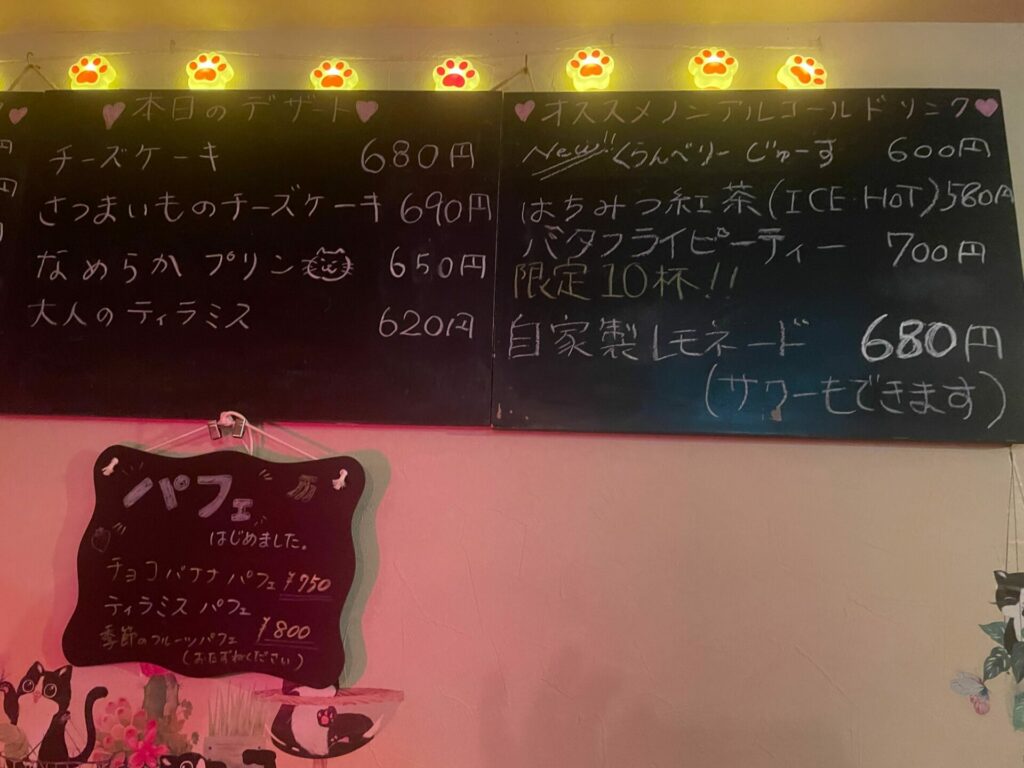 本日のデザート
チーズケーキ 680円
さつまいものチーズケーキ 690円
なめらかプリン 650円
大人のティラミス 620円
オススメノンアルコールドリンク
New!! くらんべりーじゅーす 600円
はちみつ紅茶(ICE HOT) 580円
バタフライピーティー 700円
限定10杯!!
自家製レモネード 680円
(サワーもできます)
パフェ
はじめました。
チョコバナナパフェ ¥750
ティラミスパフェ
¥800
季節のフルーツパフェ
(おたずねください)